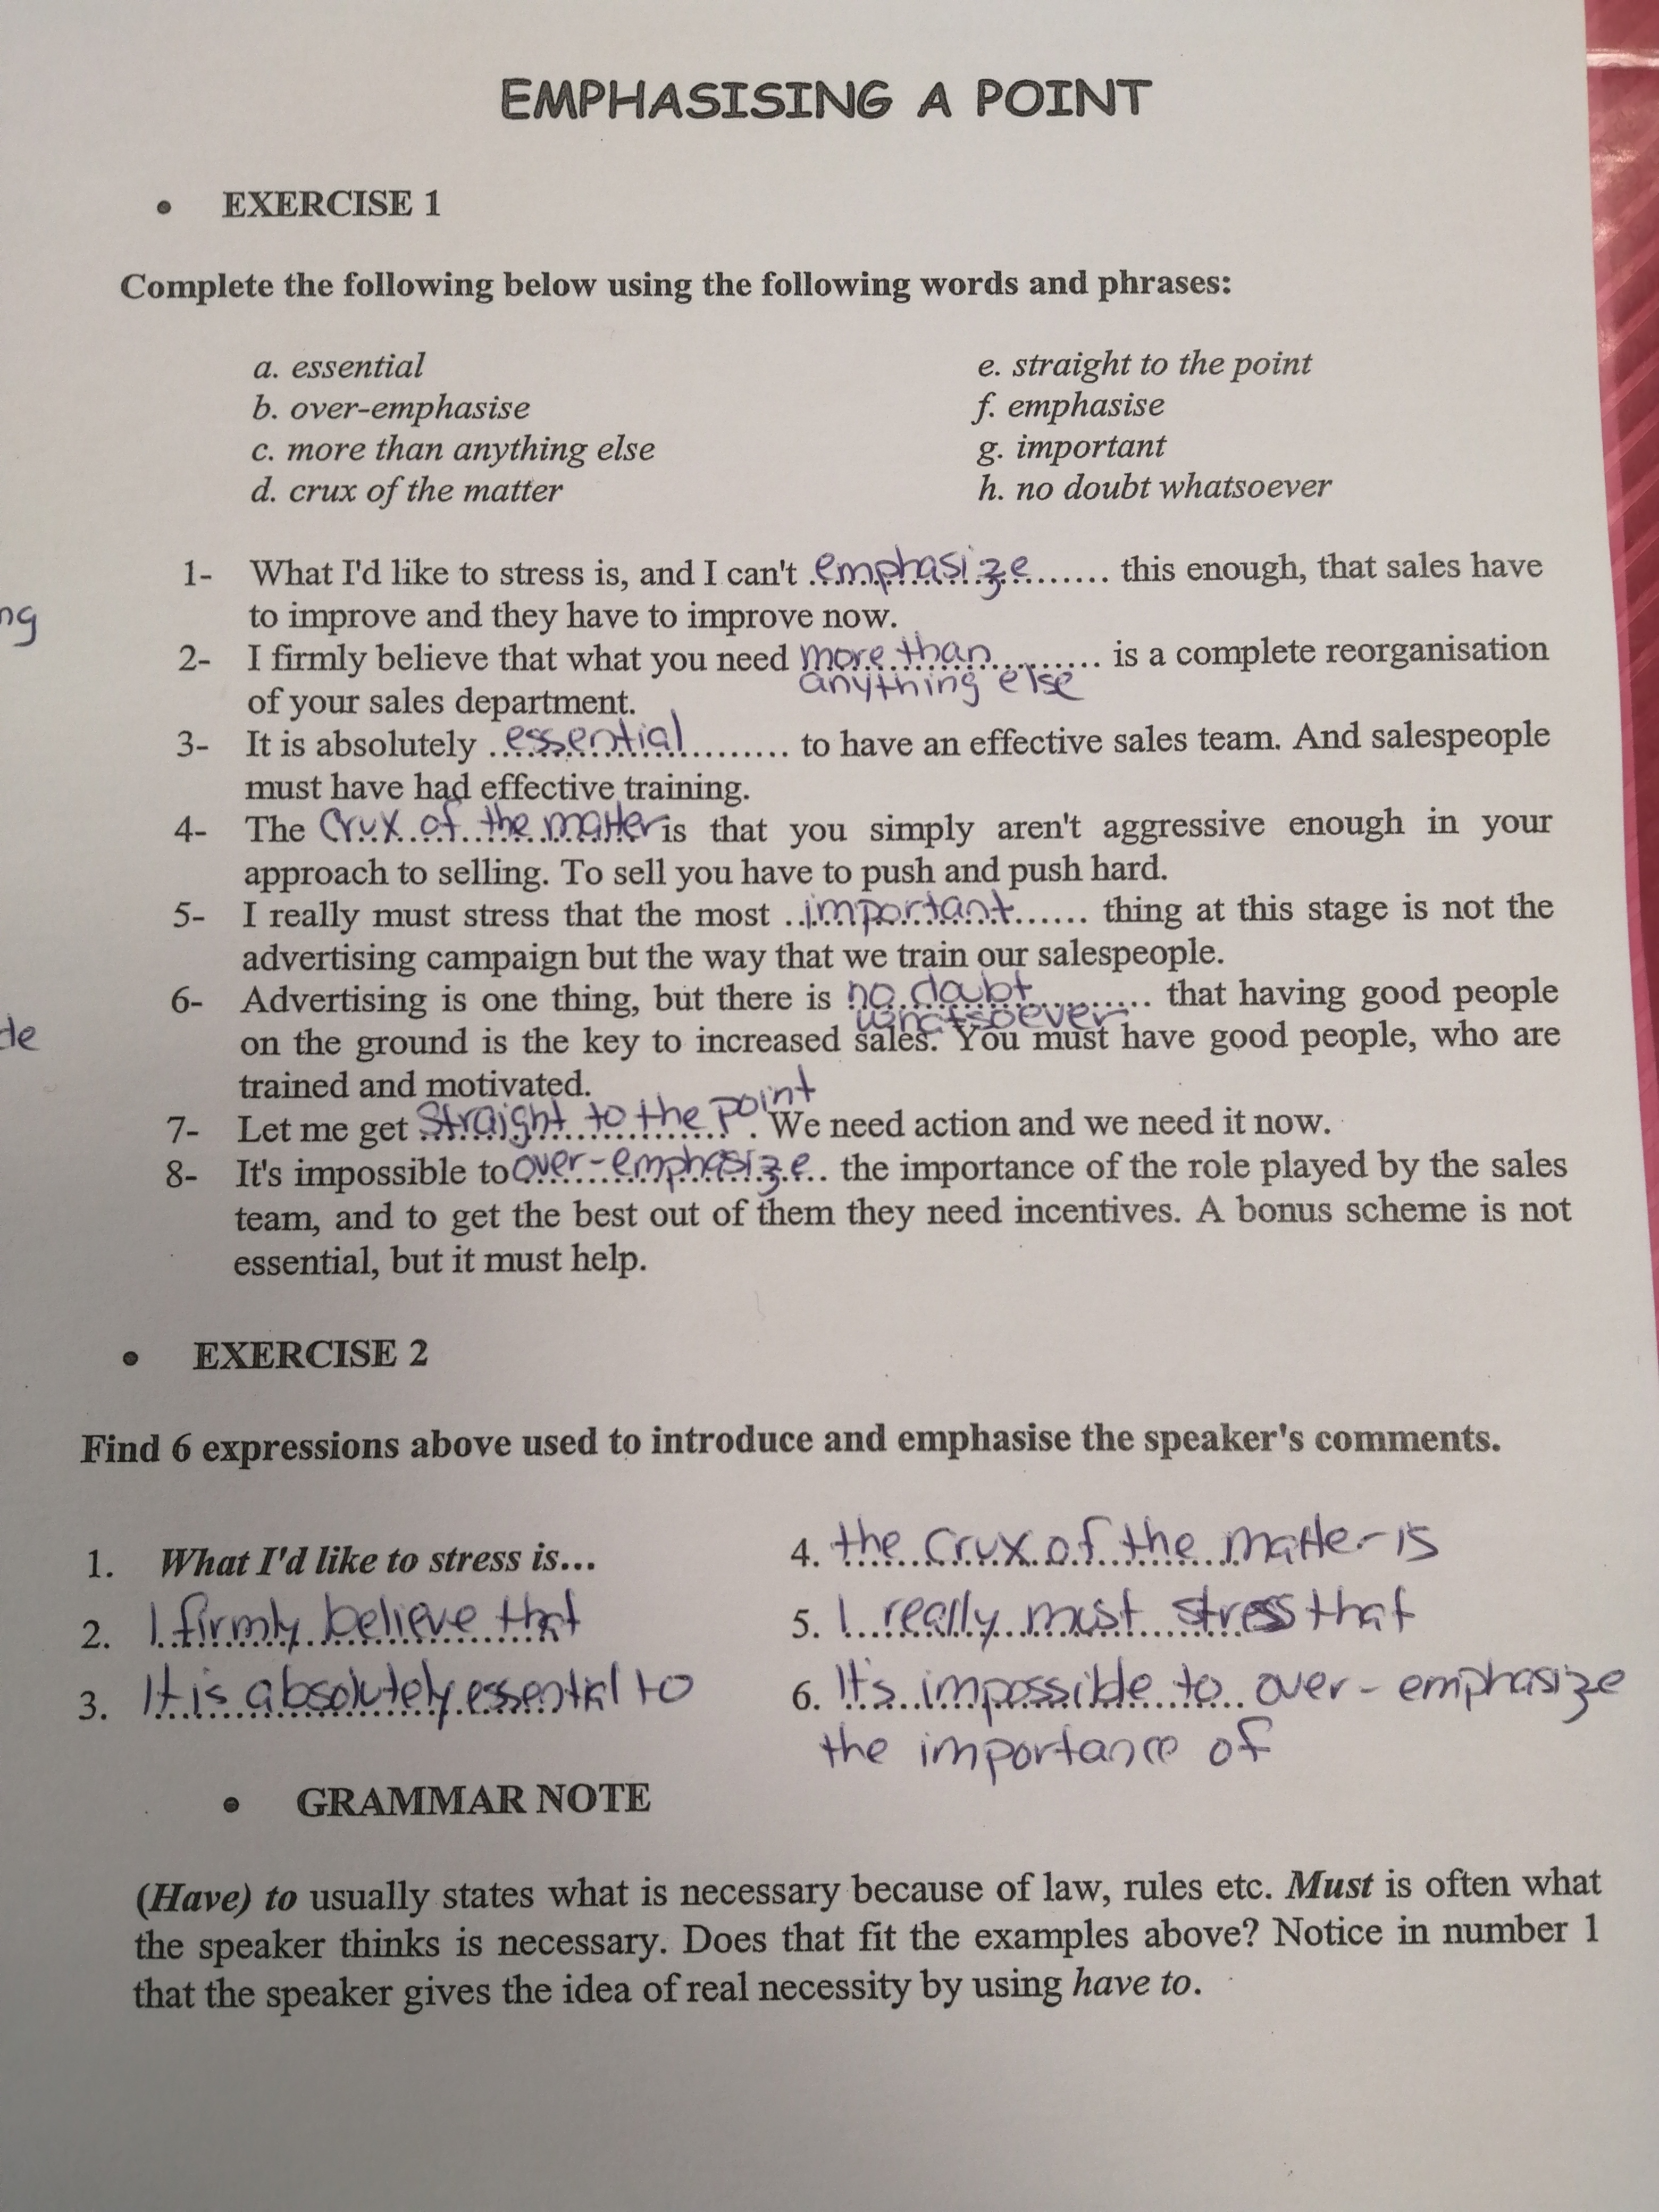 EMPHASISING A POINT
• EXERCISE 1
Complete the following below using the following words and phrases:
a. essential
b. over-emphasise
c. more than anything else
d. crux of the matter
e. straight to the point
f. emphasise
g. important
h. no doubt whatsoever
1- What I'd like to stress is, and I can't emphasize....... this enough, that sales have
to improve and they have to improve now.
2- I firmly believe that what you need more than ......... is a complete reorganisation
anything else
of your sales department.
3- It is absolutely ..essential......... to have an effective sales team. And salespeople
must have had effective training.
4- The crux of the matter is that you simply aren't aggressive enough in your
approach to selling. To sell you have to push and push hard.
5- I really must stress that the most ..important...... thing at this stage is not the
advertising campaign but the way that we train our salespeople.
6- Advertising is one thing, but there is no doubt ......... that having good people
whatsoever
on the ground is the key to increased sales. You must have good people, who are
trained and motivated.
7- Let me get Straight to the point. We need action and we need it now.
8- It's impossible to over-emphasize.. the importance of the role played by the sales
team, and to get the best out of them they need incentives. A bonus scheme is not
essential, but it must help.
• EXERCISE 2
Find 6 expressions above used to introduce and emphasise the speaker's comments.
1. What I'd like to stress is...
2. I firmly believe that
3. It is absolutely essential to
4. the crux of the matter is
5. I really must stress that
6. It's impossible to over-emphasize
the importance of
• GRAMMAR NOTE
(Have) to usually states what is necessary because of law, rules etc. Must is often what
the speaker thinks is necessary. Does that fit the examples above? Notice in number 1
that the speaker gives the idea of real necessity by using have to.